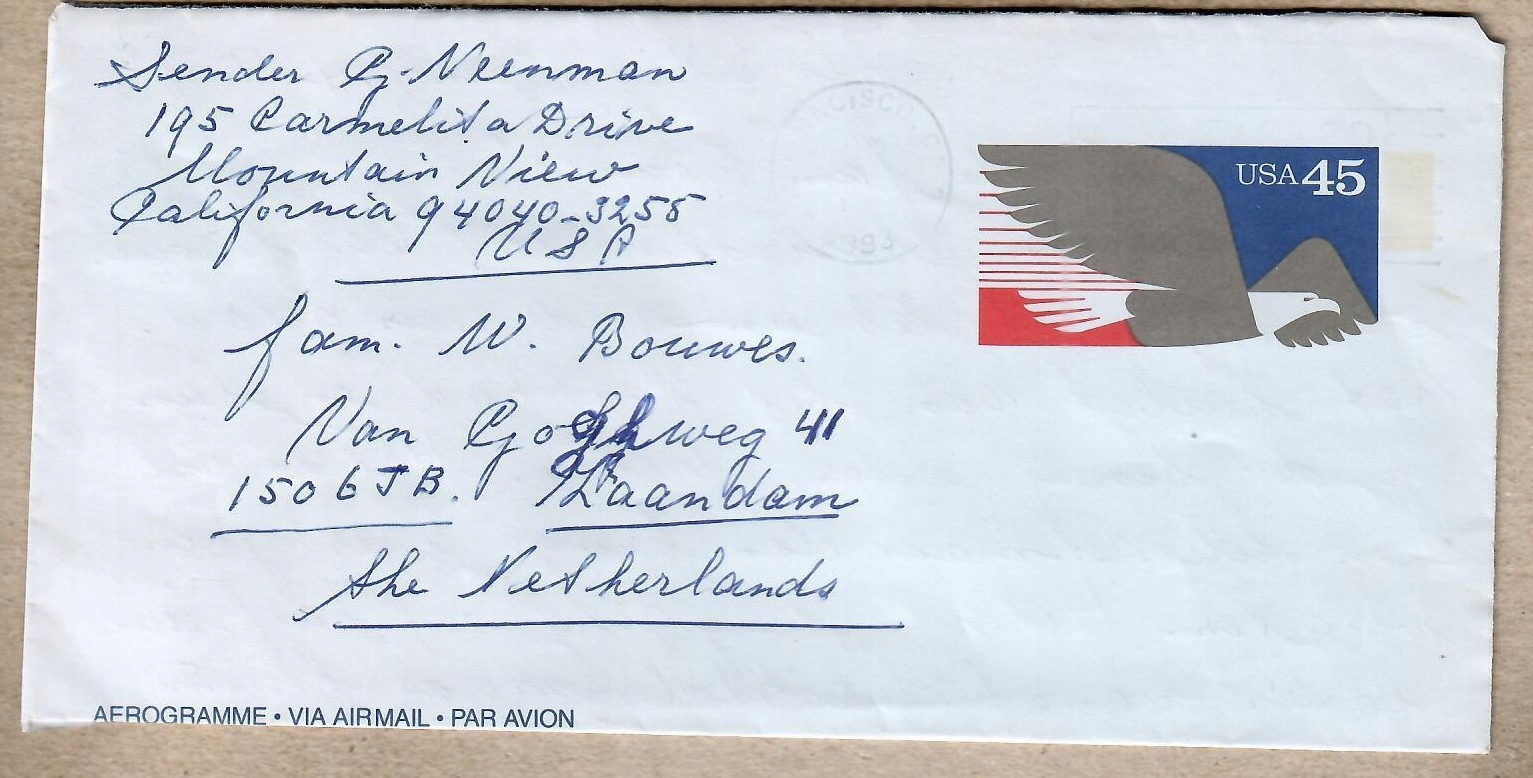 Sender G. Veenman
195 Carmelita Drive
Mountain View
California 94040-3255
USA
USA 45
fam. W. Bouwes.
Van Goghweg 41
1506JB. Zaandam
the Netherlands
AEROGRAMME • VIA AIRMAIL • PAR AVION